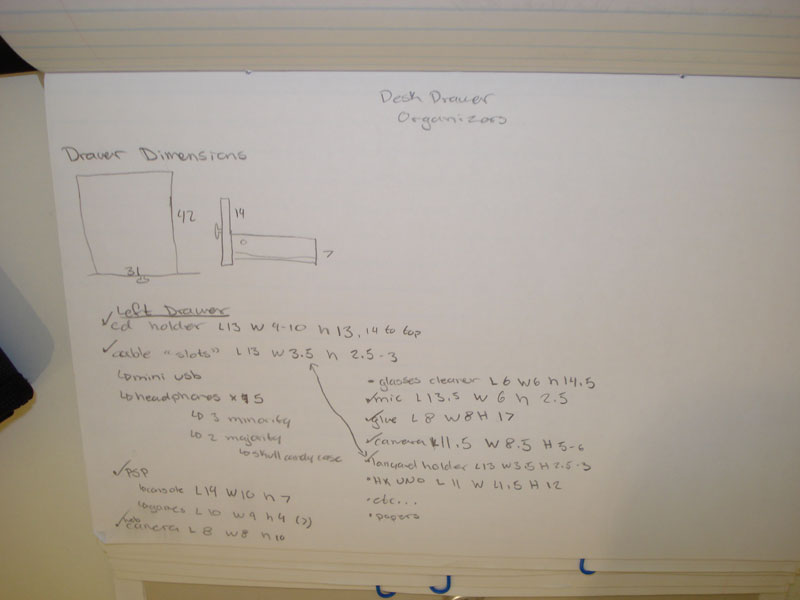 Desk Drawer
Organizors
Drawer Dimensions
42
31
14
7
Left Drawer
cd holder L13 W 9-10 h 13, 14 to top
cable "slots" L13 W 3.5 h 2.5-3
mini usb
headphones x 5
3 minority
2 majority
skull candy case
PSP
console L19 W10 h 7
games L10 W 9 h 4 (2)
camera L 8 W8 h 10
glasses cleaner L 6 W6 h 14.5
mic L 13.5 W 6 h 2.5
glue L 8 W 8 H 17
camera L11.5 W 8.5 H 5-6
lanyard holder L13 W3.5 H 2.5-3
HK UNO L 11 W 4.5 H 12
etc...
papers